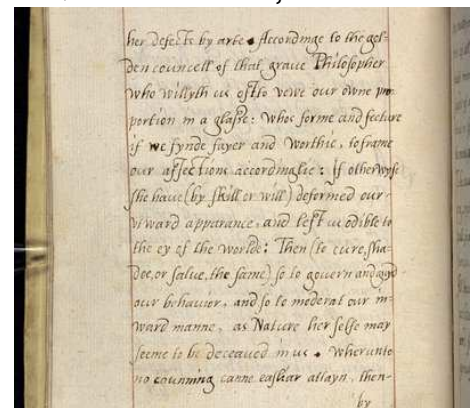 her defects by arte. Accordinge to the gol=
den councell of that grave Philosopher
who willyth us oft to vewe our owne pro
portion in a glasse: whos forme and fecture
if we fynde fayer and worthie, to frame
our affections accordinglie: If otherwyse
she have (by skill or will) deformed our
apparance, and left us odible to
the ey of the worlde: Then (to cure, sha=
doe, or salve, the same) so to govern and guyd
our behavior, and so to moderat our in=
ward manne, as Nature her selfe may
seeme to be deceaved in us. wherunto
no counning canne easliar attayn, then-
by